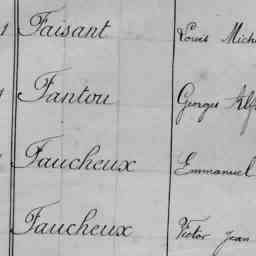 Faisant Louis
Fantou Georges
Faucheux Emmanuel
Faucheux Victor Jean